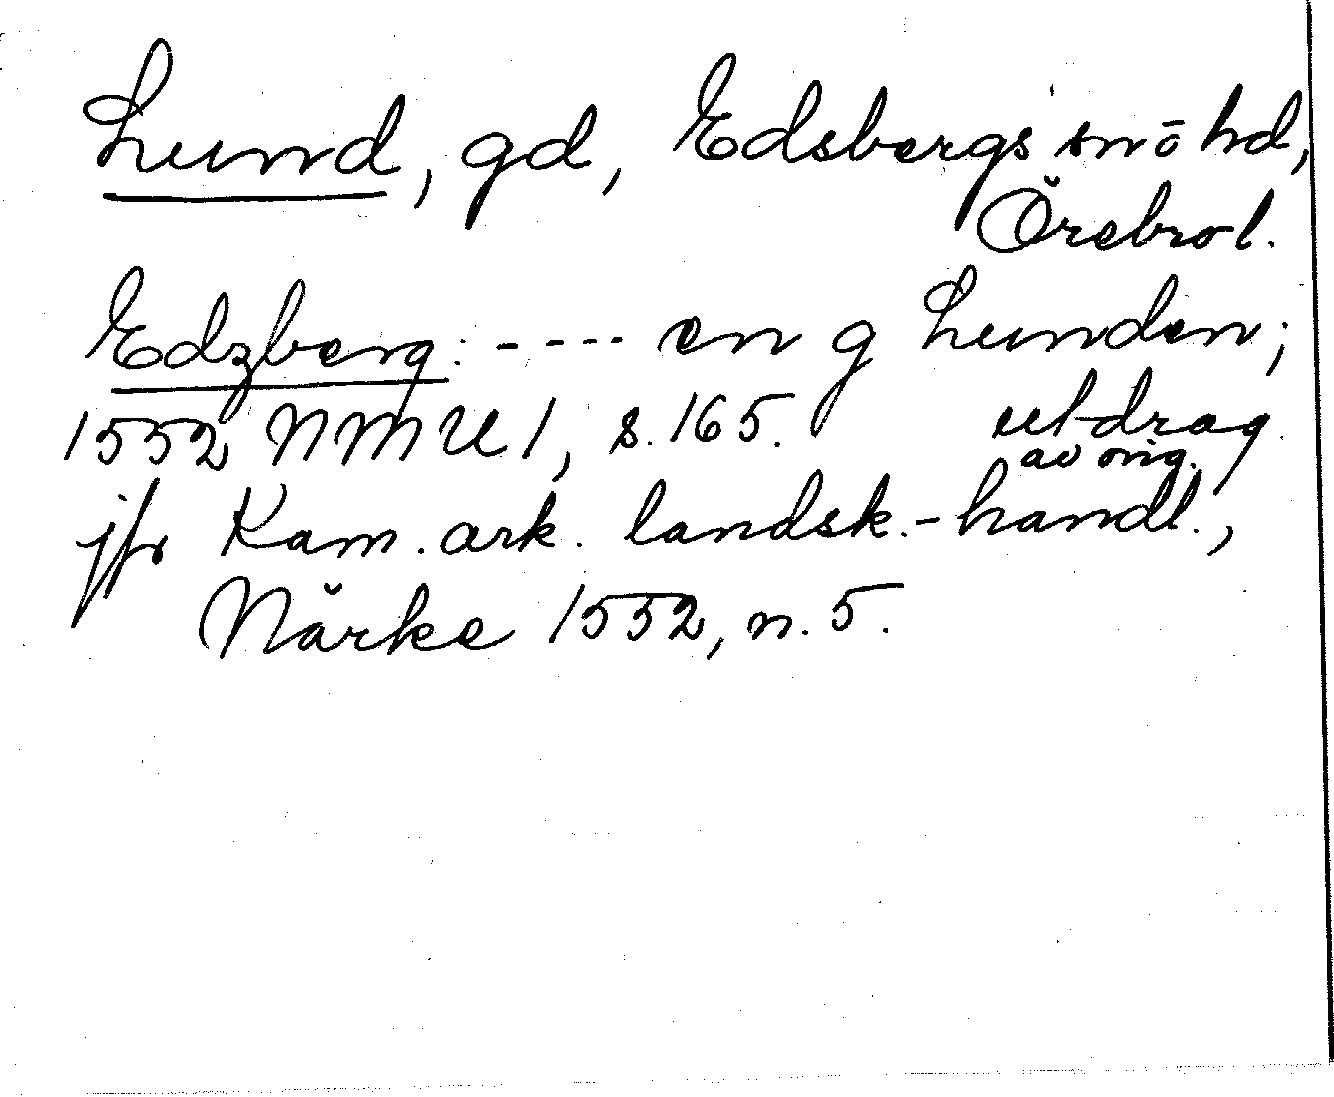 Lund, gd, Edsbergs sn ō hd,
Örebro l.
Edzberg: ---- en g Lunden;
1552 NMU 1, s. 165. utdrag
av orig.
jfr Kam. ark. landsk.-handl.,
Närke 1552, n. 5.